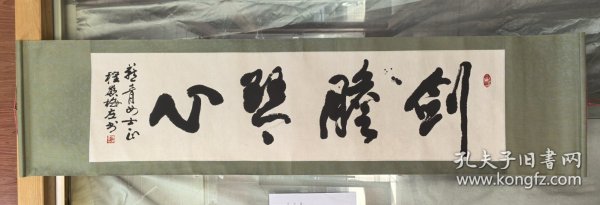 剑胆琴心
女士正
左书
孔夫子旧书网
www.kongfz.com